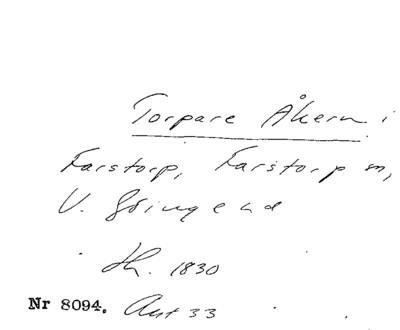 Torpare Åkern i
Farstorp, Farstorp sn,
V. Göinge hd
th. 1830
Nr 8094. Aut 33